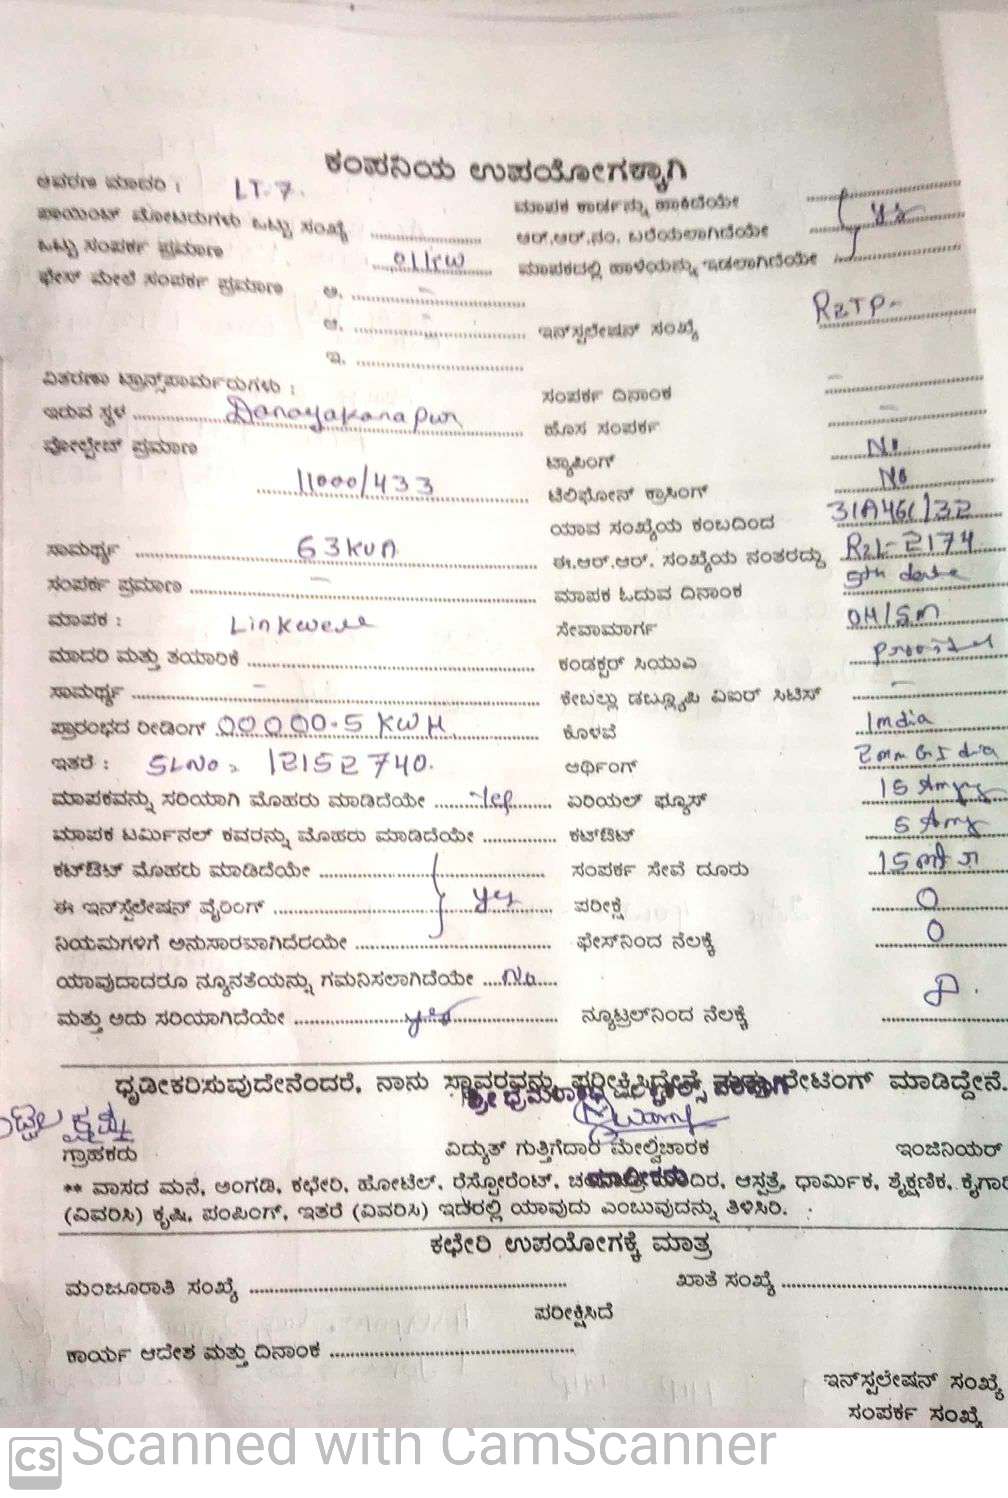 ಕಂಪನಿಯ ಉಪಯೋಗಕ್ಕಾಗಿ
ಆವರಣ ಮಾದರಿ : LT-7. ಮಾಪಕ ಕಾರ್ಡನ್ನು ಹಾಕಿದೆಯೇ
ಪಾಯಿಂಟ್ ಮೋಟರುಗಳು ಒಟ್ಟು ಸಂಖ್ಯೆ ಆರ್.ಆರ್.ನಂ. ಬರೆಯಲಾಗಿದೆಯೇ yes
ಒಟ್ಟು ಸಂಪರ್ಕ ಪ್ರಮಾಣ 01KW ಮಾಪಕದಲ್ಲಿ ಹಾಳೆಯನ್ನು ಇಡಲಾಗಿದೆಯೇ
ಫೇಸ್ ಮೇಲೆ ಸಂಪರ್ಕ ಪ್ರಮಾಣ ಅ. -
ಆ. - ಇನ್‌ಸ್ಟಲೇಷನ್ ಸಂಖ್ಯೆ R2TP-
ಇ.
ವಿತರಣಾ ಟ್ರಾನ್ಸ್‌ಫಾರ್ಮರುಗಳು : ಸಂಪರ್ಕ ದಿನಾಂಕ -
ಇರುವ ಸ್ಥಳ Danayakanapur ಹೊಸ ಸಂಪರ್ಕ -
ವೋಲ್ಟೇಜ್ ಪ್ರಮಾಣ 11000/433 ಟ್ಯಾಪಿಂಗ್ No
ಟೆಲಿಫೋನ್ ಕ್ರಾಸಿಂಗ್ No
ಯಾವ ಸಂಖ್ಯೆಯ ಕಂಬದಿಂದ
ಸಾಮರ್ಥ್ಯ 63KVA ಈ.ಆರ್.ಆರ್. ಸಂಖ್ಯೆಯ ನಂತರದ್ದು R2L-2174
ಸಂಪರ್ಕ ಪ್ರಮಾಣ - ಮಾಪಕ ಓದುವ ದಿನಾಂಕ 5th
ಮಾಪಕ : Linkwell ಸೇವಾಮಾರ್ಗ OH/Sm
ಮಾದರಿ ಮತ್ತು ತಯಾರಿಕೆ ಕಂಡಕ್ಟರ್ ಸಿಯುಎ
ಸಾಮರ್ಥ್ಯ - ಕೇಬಲ್ಲು ಡಬ್ಲ್ಯೂಪಿ ವಿಐಆರ್ ಸಿಟಿಸ್ -
ಪ್ರಾರಂಭದ ರೀಡಿಂಗ್ 00000.5 KWH ಕೊಳವೆ India
ಇತರೆ : SLNo: 12152740. ಅರ್ಥಿಂಗ್
ಮಾಪಕವನ್ನು ಸರಿಯಾಗಿ ಮೊಹರು ಮಾಡಿದೆಯೇ Yes ಏರಿಯಲ್ ಫ್ಯೂಸ್ 15 Amps
ಮಾಪಕ ಟರ್ಮಿನಲ್ ಕವರನ್ನು ಮೊಹರು ಮಾಡಿದೆಯೇ ಕಟ್‌ಔಟ್ 5 Amps
ಕಟ್‌ಔಟ್ ಮೊಹರು ಮಾಡಿದೆಯೇ ಸಂಪರ್ಕ ಸೇವೆ ದೂರು
ಈ ಇನ್‌ಸ್ಟಲೇಷನ್ ವೈರಿಂಗ್ yes ಪರೀಕ್ಷೆ 0
ನಿಯಮಗಳಿಗೆ ಅನುಸಾರವಾಗಿದೆರಯೇ ಫೇಸ್‌ನಿಂದ ನೆಲಕ್ಕೆ 0
ಯಾವುದಾದರೂ ನ್ಯೂನತೆಯನ್ನು ಗಮನಿಸಲಾಗಿದೆಯೇ No
ಮತ್ತು ಅದು ಸರಿಯಾಗಿದೆಯೇ yes ನ್ಯೂಟ್ರಲ್‌ನಿಂದ ನೆಲಕ್ಕೆ
ಧೃಡೀಕರಿಸುವುದೇನೆಂದರೆ, ನಾನು ಸ್ಥಾವರವನ್ನು ಪರೀಕ್ಷಿಸಿದ್ದೇನೆ ಮತ್ತು ರೇಟಿಂಗ್ ಮಾಡಿದ್ದೇನೆ.
ಗ್ರಾಹಕರು ವಿದ್ಯುತ್ ಗುತ್ತಿಗೆದಾರ ಮೇಲ್ವಿಚಾರಕ ಇಂಜಿನಿಯರ್
** ವಾಸದ ಮನೆ, ಅಂಗಡಿ, ಕಛೇರಿ, ಹೋಟೆಲ್, ರೆಸ್ಟೋರೆಂಟ್, ಆಸ್ಪತ್ರೆ, ಧಾರ್ಮಿಕ, ಶೈಕ್ಷಣಿಕ,
(ವಿವರಿಸಿ) ಕೃಷಿ, ಪಂಪಿಂಗ್, ಇತರೆ (ವಿವರಿಸಿ) ಇದರಲ್ಲಿ ಯಾವುದು ಎಂಬುವುದನ್ನು ತಿಳಿಸಿರಿ.
ಕಛೇರಿ ಉಪಯೋಗಕ್ಕೆ ಮಾತ್ರ
ಮಂಜೂರಾತಿ ಸಂಖ್ಯೆ ಖಾತೆ ಸಂಖ್ಯೆ
ಪರೀಕ್ಷಿಸಿದೆ
ಕಾರ್ಯ ಆದೇಶ ಮತ್ತು ದಿನಾಂಕ
ಇನ್‌ಸ್ಟಲೇಷನ್ ಸಂಖ್ಯೆ
ಸಂಪರ್ಕ ಸಂಖ್ಯೆ
CS Scanned with CamScanner